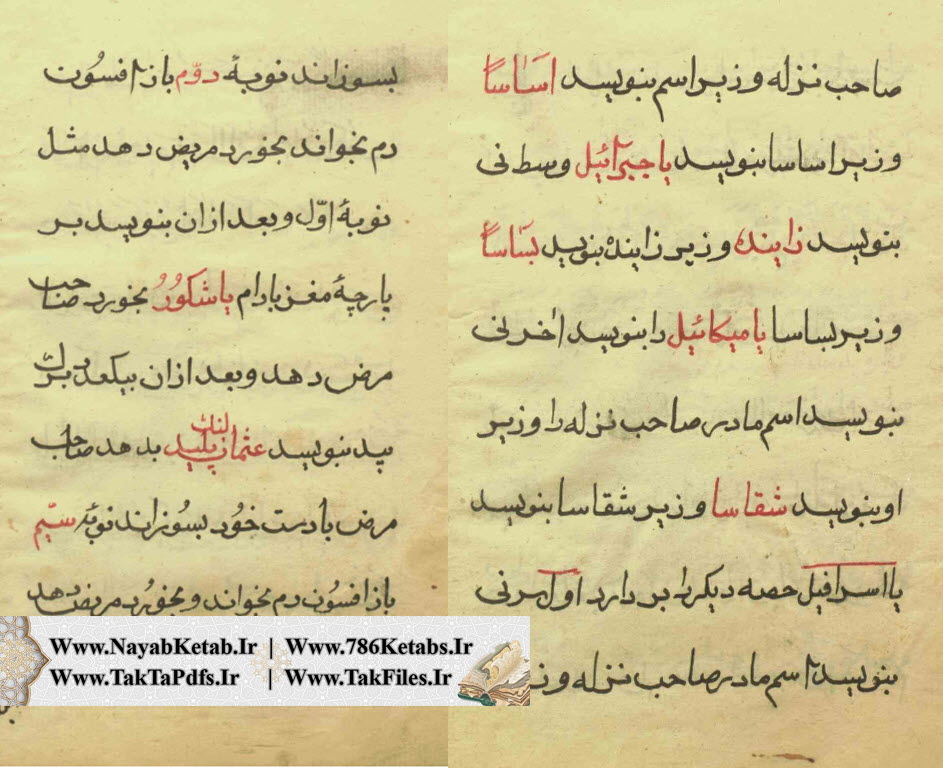 صاحب نزله و زیر اسم بنویسد اساسا
وزیر اساسا بنویسد یا جبرآئیل وسط نی
بنویسد زاینده و زیر زاینده بنوید بساسا
وزیر بساسا یا میکائیل را بنویسد اخر نی
بنویسد اسم مادر صاحب نزله را وزیر
او بنویسد شقاسا وزیر شقاسا بنویسد
یا اسرافیل حصه دیکر را بردارد اول سر نی
بنویسد اسم مادر صاحب نزله و
بسوزاند نوبهٔ دوّم باز افسُون
دم بخواند بخورد مریض دهد مثل
نوبهٔ اوّل و بعد ازان بنویسد بر
پارچهٔ مغز بادام یا شکورُ بخورد صاحب
مرض دهد و بعد ازان بیکعدد برك
بید بنویسد عثمان پلید لنك بدهد صاحب
مرض با دست خُود بسُوزاند نوبهٔ سیّم
باز افسُون دم بخواند و بخورد مریض دهد
Www.NayabKetab.Ir | Www.786Ketabs.Ir
Www.TakTaPdfs.Ir | Www.TakFiles.Ir